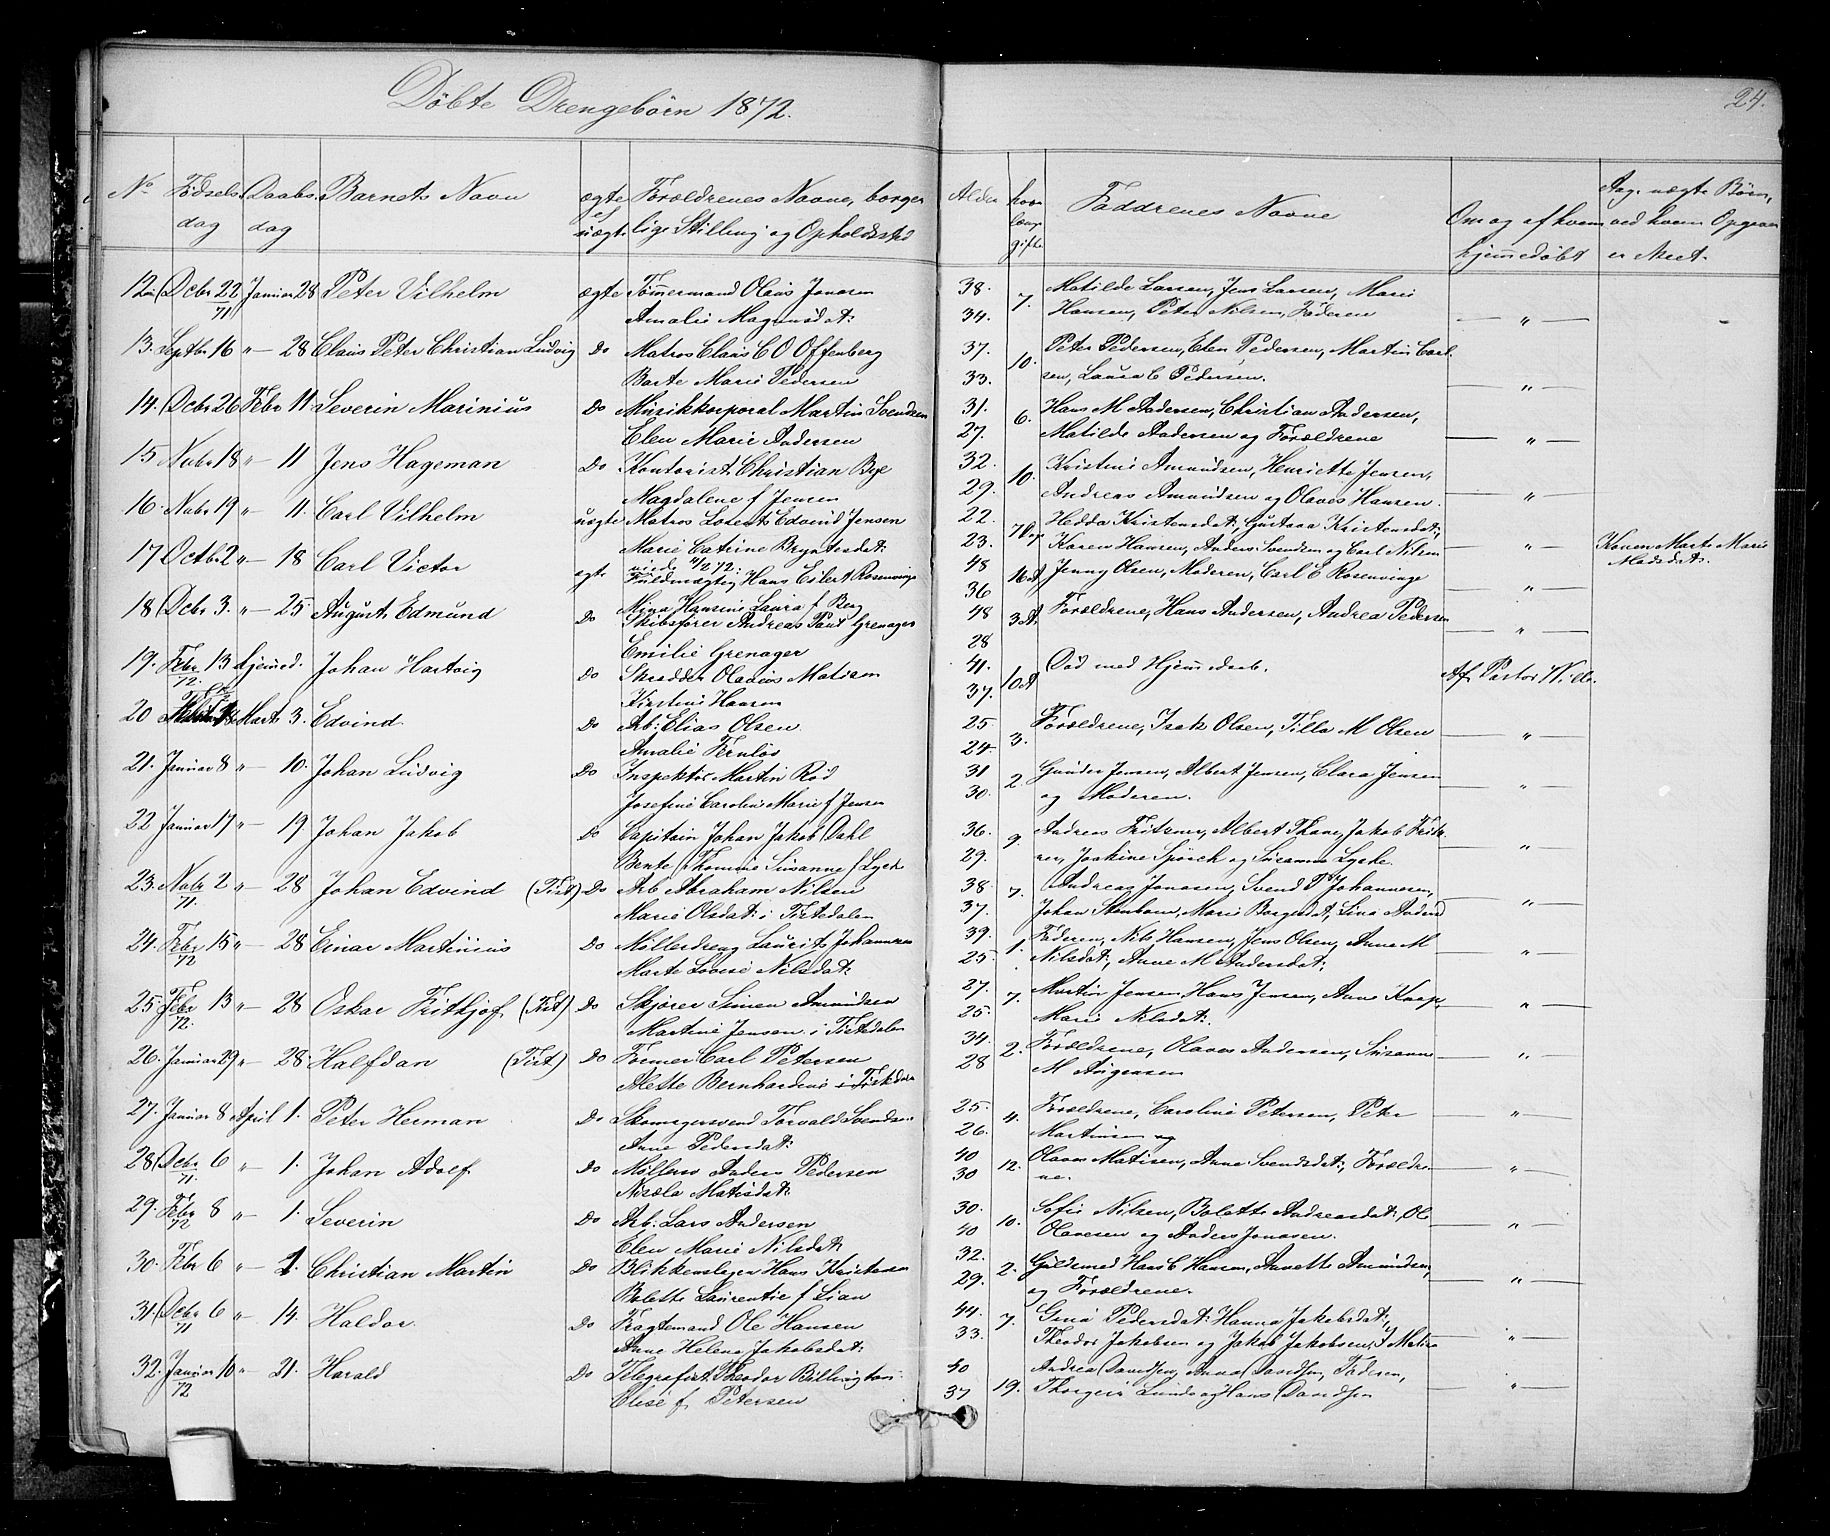 Döbte Drengebörn 1872.
24.
No Födsels dag Daabs dag Barnets Navn ægte uægte Forældrenes Navne, borgerlige Stilling og Opholdssted
Alder hvor længe gifte Faddrenes Navne Om og af hvem hjemmedöbt Ang. uægte Börn, ved hvem Opgaven er skeet.
12 Dcbr 22 71 Januar 28 Peter Vilhelm ægte Tömmermand Olaus Jonasen
Amalie Magnusdat:
38. 34. 7. Matilde Larsen, Jens Larsen, Marie
Hansen, Peter Nilsen, Faderen — " —
13. Septbr 16 " — 28 Claus Peter Christian Ludvig Do Matros Claus C O Offenberg
Barte Marie Pedersen
37. 33. 10. Peter Pedersen, Elen Pedersen, Martin Carl
sen, Laura C Pedersen. — " —
14. Dcbr 26 Febr 11 Severin Marinius Do Musikkorporal Martin Svendsen
Elen Marie Andersen
31. 27. 6. Hans M Andersen, Christian Andersen,
Matilde Andersen og Forældrene — " —
15 Nvbr 18 " — 11 Jens Hageman Do Kontorist Christian Bye
Magdalene f Jensen
32. 29. 10. Kristine Amundsen, Henriette Jensen,
Andreas Amundsen og Olaves Hansen. — " —
16. Nvbr 19 " — 11. Carl Vilhelm uægte Matros Lorents Edvind Jensen
Marie Catrine Bryntesdat:
22. 23. Hedda Kristensdat:, Gustava Kristensdat:,
Karen Hansen, Anders Svendsen og Carl Nilsen — " — Konen Marte Marie
Madsdat:
17 Octbr 2 " — 18 Carl Victor egte Fuldmægtig Hans Eilert Rosenvinge
Mina Hansine Laura f Berg
48 36 16 A Jenny Olsen, Moderen, Carl E Rosenvinge — " —
18 Dcbr 3. " — 25 August Edmund Do Skibsförer Andreas Paul Grenager
Emilie Grenager
48 28 3 A. Forældrene, Hans Andersen, Andrea Pedersen — " —
19. Febr 13 72. hjemmed. Johan Hartvig Do Skrædder Olavus Matisen
Kirstine Hansen
41. 37. 10 A Död med Hjemmedaab. Af Pastor Wille.
20 Marts 3. Edvind Do Arb: Elias Olsen
Amalie Fernlös
25 24. 3. Forældrene, Isak Olsen, Tilla M Olsen — " —
21. Januar 8 " — 10. Johan Ludvig Do Inspektör Martin Röd
Josefine Caroline Marie f Jensen
31 30. 2. Gunder Jensen, Albert Jensen, Clara Jensen
og Moderen. — " —
22 Januar 17 " — 19. Johan Jakob Do Capitain Johan Jakob Dahl
Bente Thomine Susanne f Lycke
36. 29. 9. Andreas Fritzner, Albert Thane, Jakob Fritz
ner, Joakine Spörck og Susanne Lycke. — " —
23. Nvbr 2 71. " — 28 Johan Edvind (Tist) Do Arb Abraham Nilsen
Marie Olsdat: i Tistedalen
38. 37. 7. Andreas Jonasen, Svend P Johannesen,
Johan Stenhom, Marie Borgesdat, Lina Andersd — " —
24. Febr 15 72 " — 28 Einar Martinius Do Möllerdreng Laurits Johannesen
Marte Lovise Nilsdat:
39. 25. 1. Faderen, Nils Hansen, Jens Olsen, Anne M
Nilsdat:, Anne M Andersdat:, — " —
25. Febr 13 72. " — 28 Oskar Fritkjof (Tist) Do Skjörer Simen Amundsen
Martine Jensen i Tistedalen
27. 25. 7. Martin Jensen Hans Jensen, Anne Knap,
Marie Nilsdat:. — " —
26. Januar 29 " — 28. Halfdan (Tist) Do Former Carl Petersen
Mette Bernhardine i Tistedalen
34. 28 2. Forældrene, Olaves Andersen, Susanne
M Aagensen — " —
27. Januar 8 April 1. Peter Herman Do Skomagersvend Torvald Svendsen
Anne Pedersdat:
25. 26. 4. Forældrene, Caroline Petersen, Peter
Martinsen og — " —
28 Dcbr 6 71. " — 1. Johan Adolf Do Möllers Anders Pedersen
Nicola Matisdat:
40 30 12. Olaves Matisen, Anne Svendsdat:, Forældre
ne. — " —
29. Febr 8 72 " — 1. Severin Do Arb: Lars Andersen
Elen Marie Nilsdat:
30. 40 10. Sofie Nilsen, Bolette Andreasdat:, Ole
Olavesen og Anders Jonasen. — " —
30. Febr 6 " — 1. Christian Martin Do Blikkenslager Hans Kristensen
Bolette Laurentie f Lian
32. 29. 2. Guldsmed Hans C Hansen, Annette Amundsen,
og Forældrene. — " —
31 Dcbr 6 71 " — 14. Haldor. Do Fragtemand Ole Hansen
Anne Helene Jakobsdat:
44. 33. 7. Gina Pedersdat: Hanna Jakobsdat:,
Theodor Jakobsen og Jakob Jakobsen, — " —
32. Januar 10 72 " — 21. Harald Do Telegrafist Theodor Billington
Elise f Petersen
40 37 19. Andrea Davidsen, Anna Davidsen, Faderen,
Thorgeir Lunde og Hans Davidsen — " —